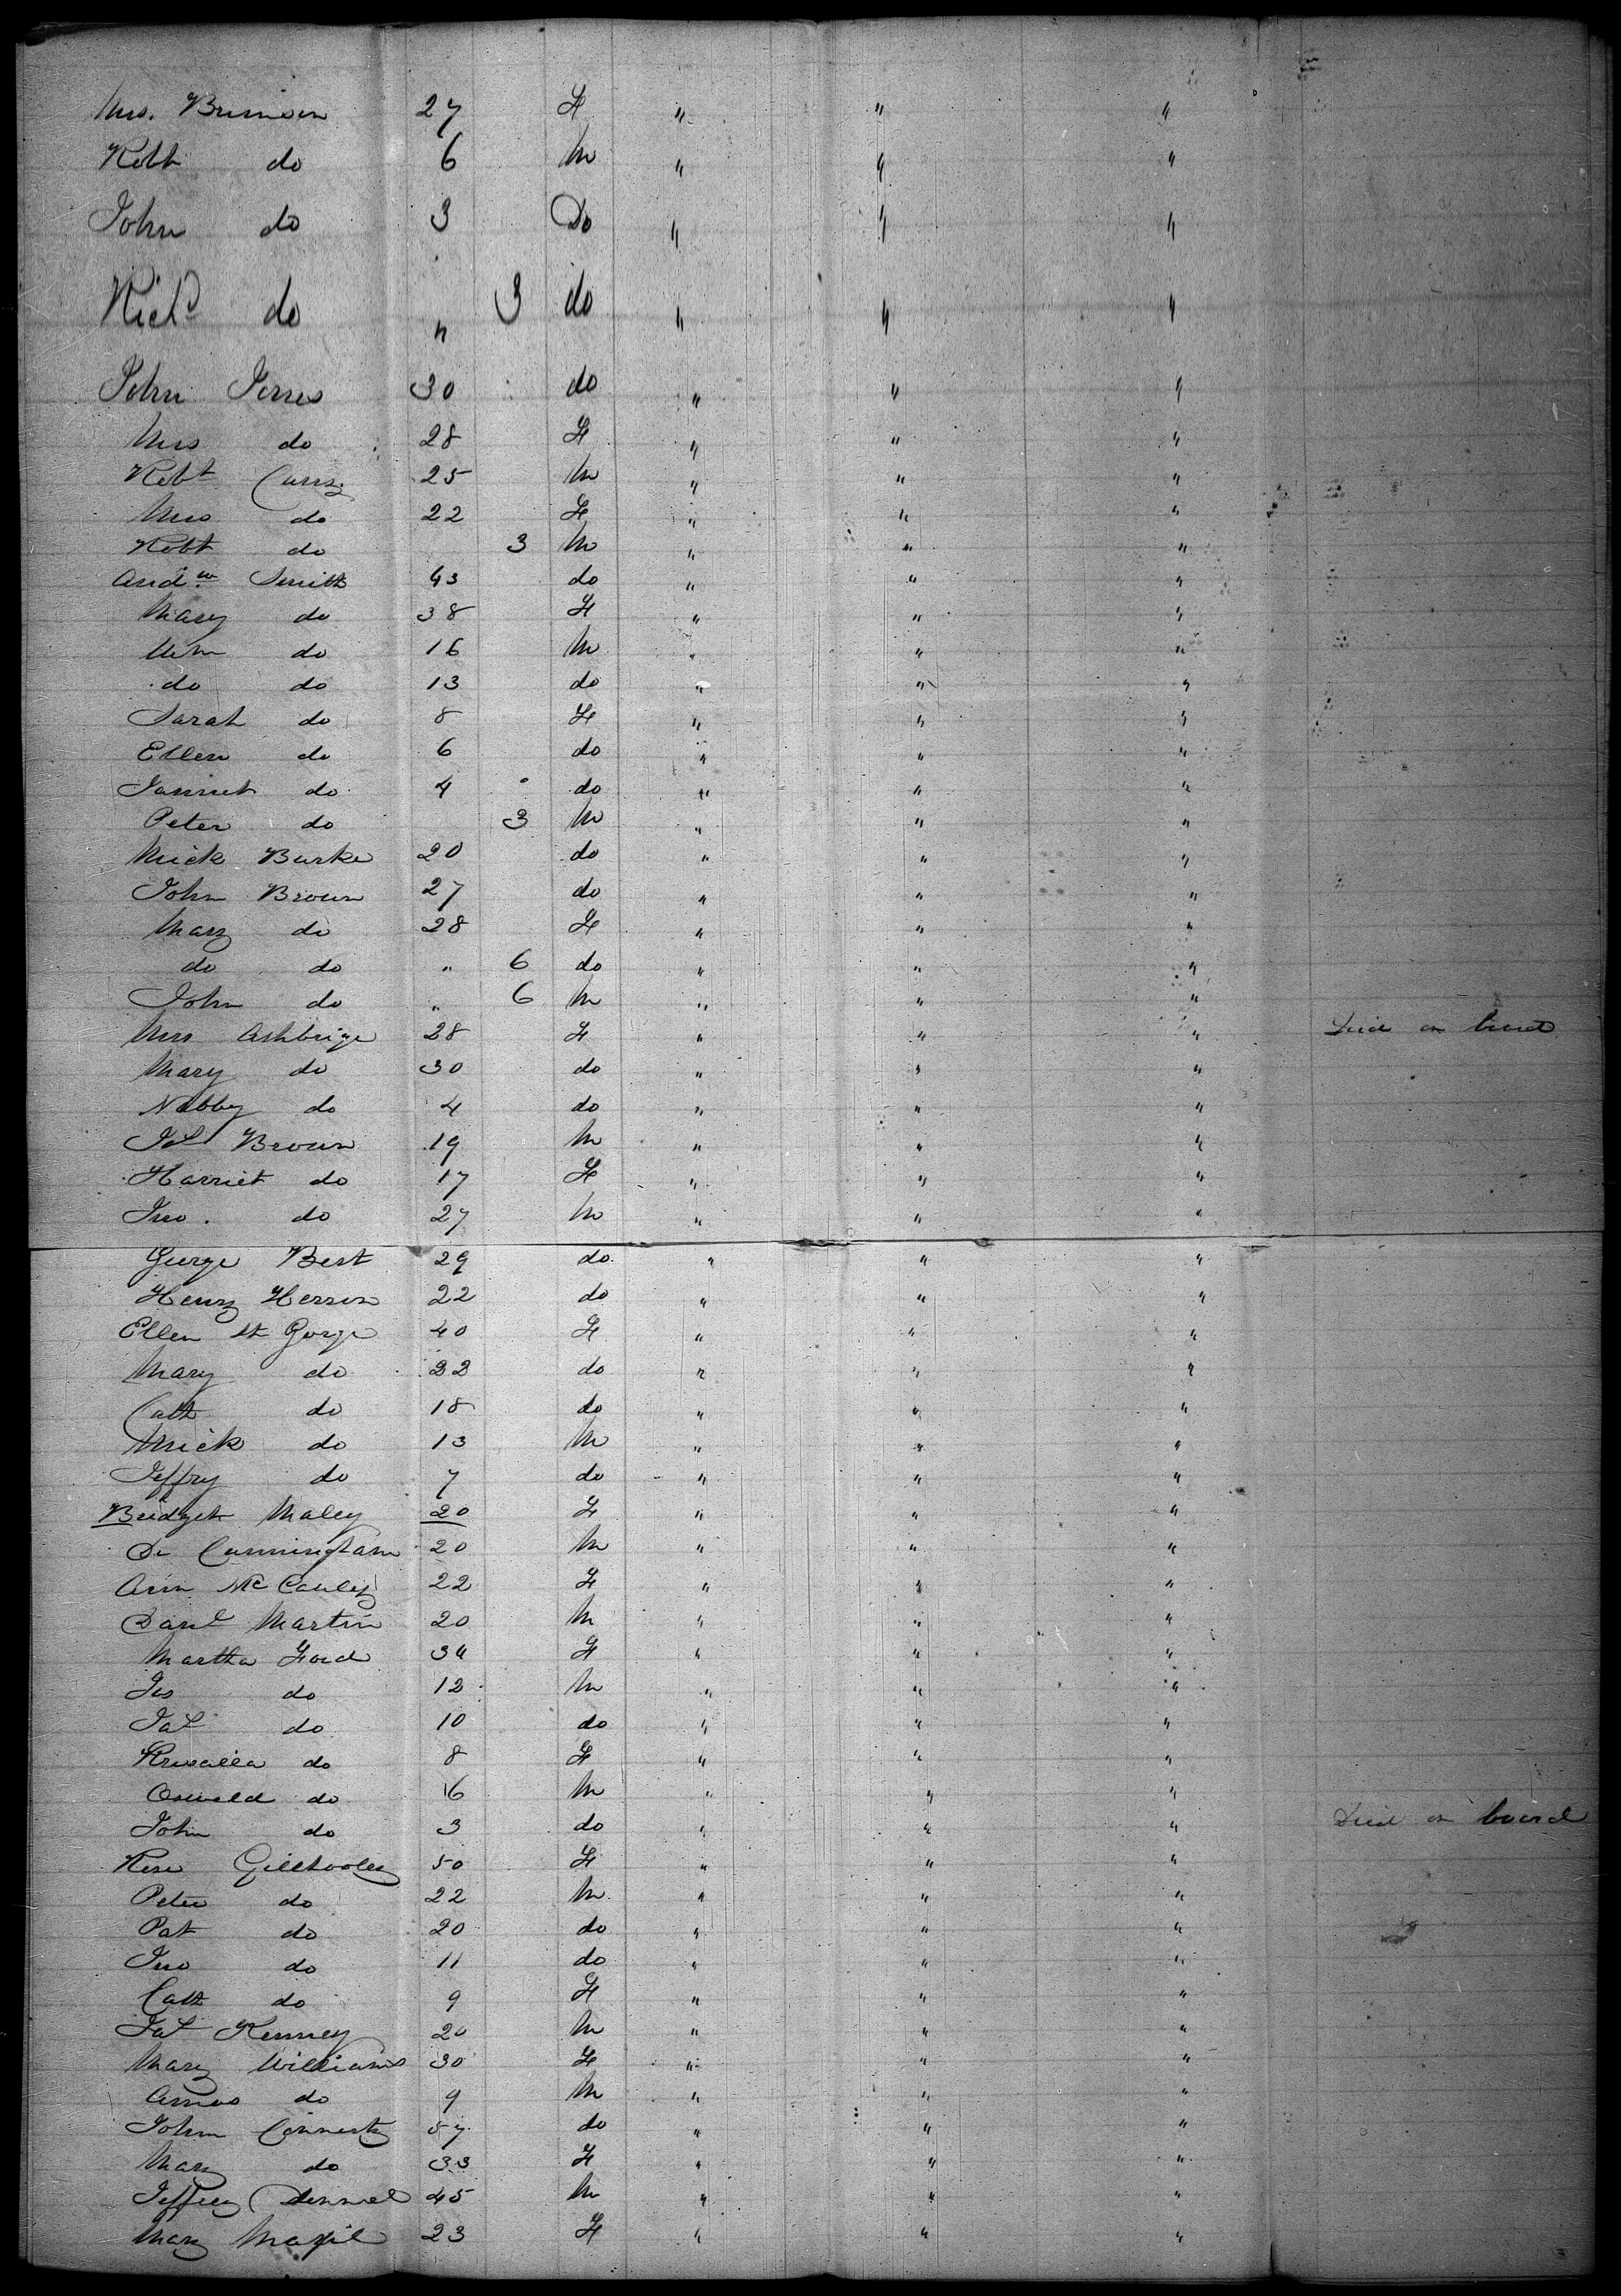 Mrs. Brinson 27 F " " "
Robt do 6 M " " "
John do 3 Do " " "
Richd do " 3 do " " "
John Jones 30 do " " "
Mrs do 28 F " " "
Robt Curry 25 M " " "
Mrs do 22 F " " "
Robt do 3 M " " "
Andw Smith 43 do " " "
Mary do 38 F " " "
Wm do 16 M " " "
do do 13 do " " "
Sarah do 8 F " " "
Ellen do 6 do " " "
Jannet do 4 do " " "
Peter do 3 M " " "
Mick Burke 20 do " " "
John Brown 27 do " " "
Mary do 28 F " " "
do do " 6 do " " "
John do " 6 M " " "
Mrs Ashbrige 28 F " " " Died on board
Mary do 30 do " " "
Nabby do 4 do " " "
Jas Brown 19 M " " "
Harriet do 17 F " " "
Jno. do 27 M " " "
George Best 29 do " " "
Henry Herron 22 do " " "
Ellen St Gorge 40 F " " "
Mary do 22 do " " "
Cath do 18 do " " "
Mick do 13 M " " "
Jeffry do 7 do " " "
Bridget Maley 20 F " " "
Cunningham 20 M " " "
Ann McCauley 22 F " " "
Danl Martin 20 M " " "
Martha Ford 34 F " " "
Jos do 12 M " " "
Jas do 10 do " " "
Prisailla do 8 F " " "
Oswald do 6 M " " "
John do 3 do " " " Died on board
Rose Gillhooley 50 F " " "
Peter do 22 M " " "
Pat do 20 do " " "
Jno do 11 do " " "
Cath do 9 F " " "
Jas Kenney 20 M " " "
Mary Williams 30 F " " "
Amos do 9 M " " "
John 57 do " " "
Mary do 33 F " " "
Jeffrey 45 M " " "
Mary 23 F " " "